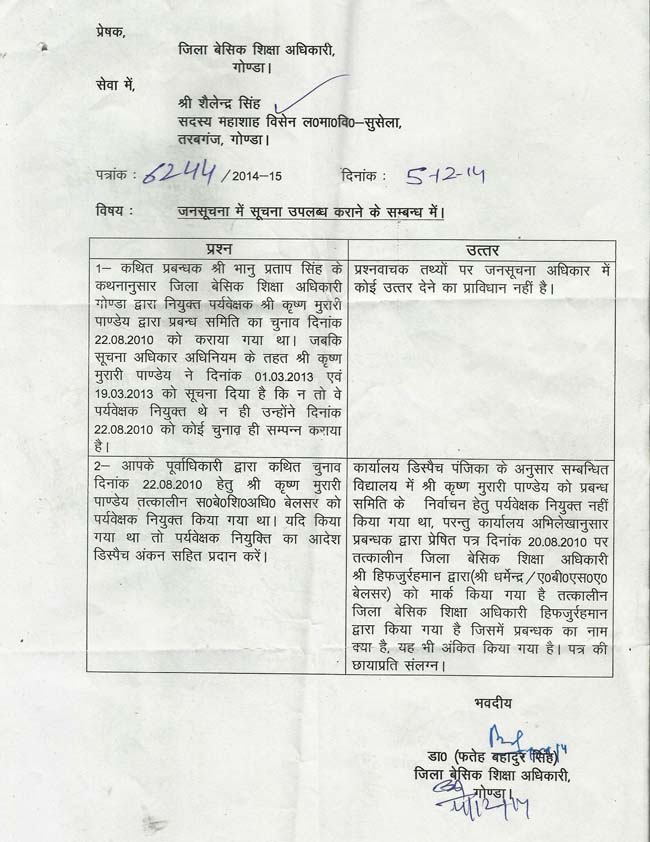 प्रेषक,
जिला बेसिक शिक्षा अधिकारी,
गोण्डा।
सेवा में,
श्री शैलेन्द्र सिंह
सदस्य महाशाह विसेन ल0मा0वि0–सुसेला,
तरबगंज, गोण्डा।
पत्रांक : 6244 /2014–15 दिनांक : 5-12-14
विषय : जनसूचना में सूचना उपलब्ध कराने के सम्बन्ध में।
प्रश्न
1– कथित प्रबन्धक श्री भानु प्रताप सिंह के
कथनानुसार जिला बेसिक शिक्षा अधिकारी
गोण्डा द्वारा नियुक्त पर्यवेक्षक श्री कृष्ण मुरारी
पाण्डेय द्वारा प्रबन्ध समिति का चुनाव दिनांक
22.08.2010 को कराया गया था। जबकि
सूचना अधिकार अधिनियम के तहत श्री कृष्ण
मुरारी पाण्डेय ने दिनांक 01.03.2013 एवं
19.03.2013 को सूचना दिया है कि न तो वे
पर्यवेक्षक नियुक्त थे न ही उन्होंने दिनांक
22.08.2010 को कोई चुनाव ही सम्पन्न कराया
है।
उत्तर
प्रश्नवाचक तथ्यों पर जनसूचना अधिकार में
कोई उत्तर देने का प्राविधान नहीं है।
2– आपके पूर्वाधिकारी द्वारा कथित चुनाव
दिनांक 22.08.2010 हेतु श्री कृष्ण मुरारी
पाण्डेय तत्कालीन स0बे0शि0अधि0 बेलसर को
पर्यवेक्षक नियुक्त किया गया था। यदि किया
गया था तो पर्यवेक्षक नियुक्ति का आदेश
डिस्पैच अंकन सहित प्रदान करें।
कार्यालय डिस्पैच पंजिका के अनुसार सम्बन्धित
विद्यालय में श्री कृष्ण मुरारी पाण्डेय को प्रबन्ध
समिति के निर्वाचन हेतु पर्यवेक्षक नियुक्त नहीं
किया गया था, परन्तु कार्यालय अभिलेखानुसार
प्रबन्धक द्वारा प्रेषित पत्र दिनांक 20.08.2010 पर
तत्कालीन जिला बेसिक शिक्षा अधिकारी
श्री हिफजुर्रहमान द्वारा(श्री धर्मेन्द्र/ए0बी0एस0ए0
बेलसर) को मार्क किया गया है तत्कालीन
जिला बेसिक शिक्षा अधिकारी हिफजुर्रहमान
द्वारा किया गया है जिसमें प्रबन्धक का नाम
क्या है, यह भी अंकित किया गया है। पत्र की
छायाप्रति संलग्न।
भवदीय
डा0 (फतेह बहादुर सिंह)
जिला बेसिक शिक्षा अधिकारी,
गोण्डा।